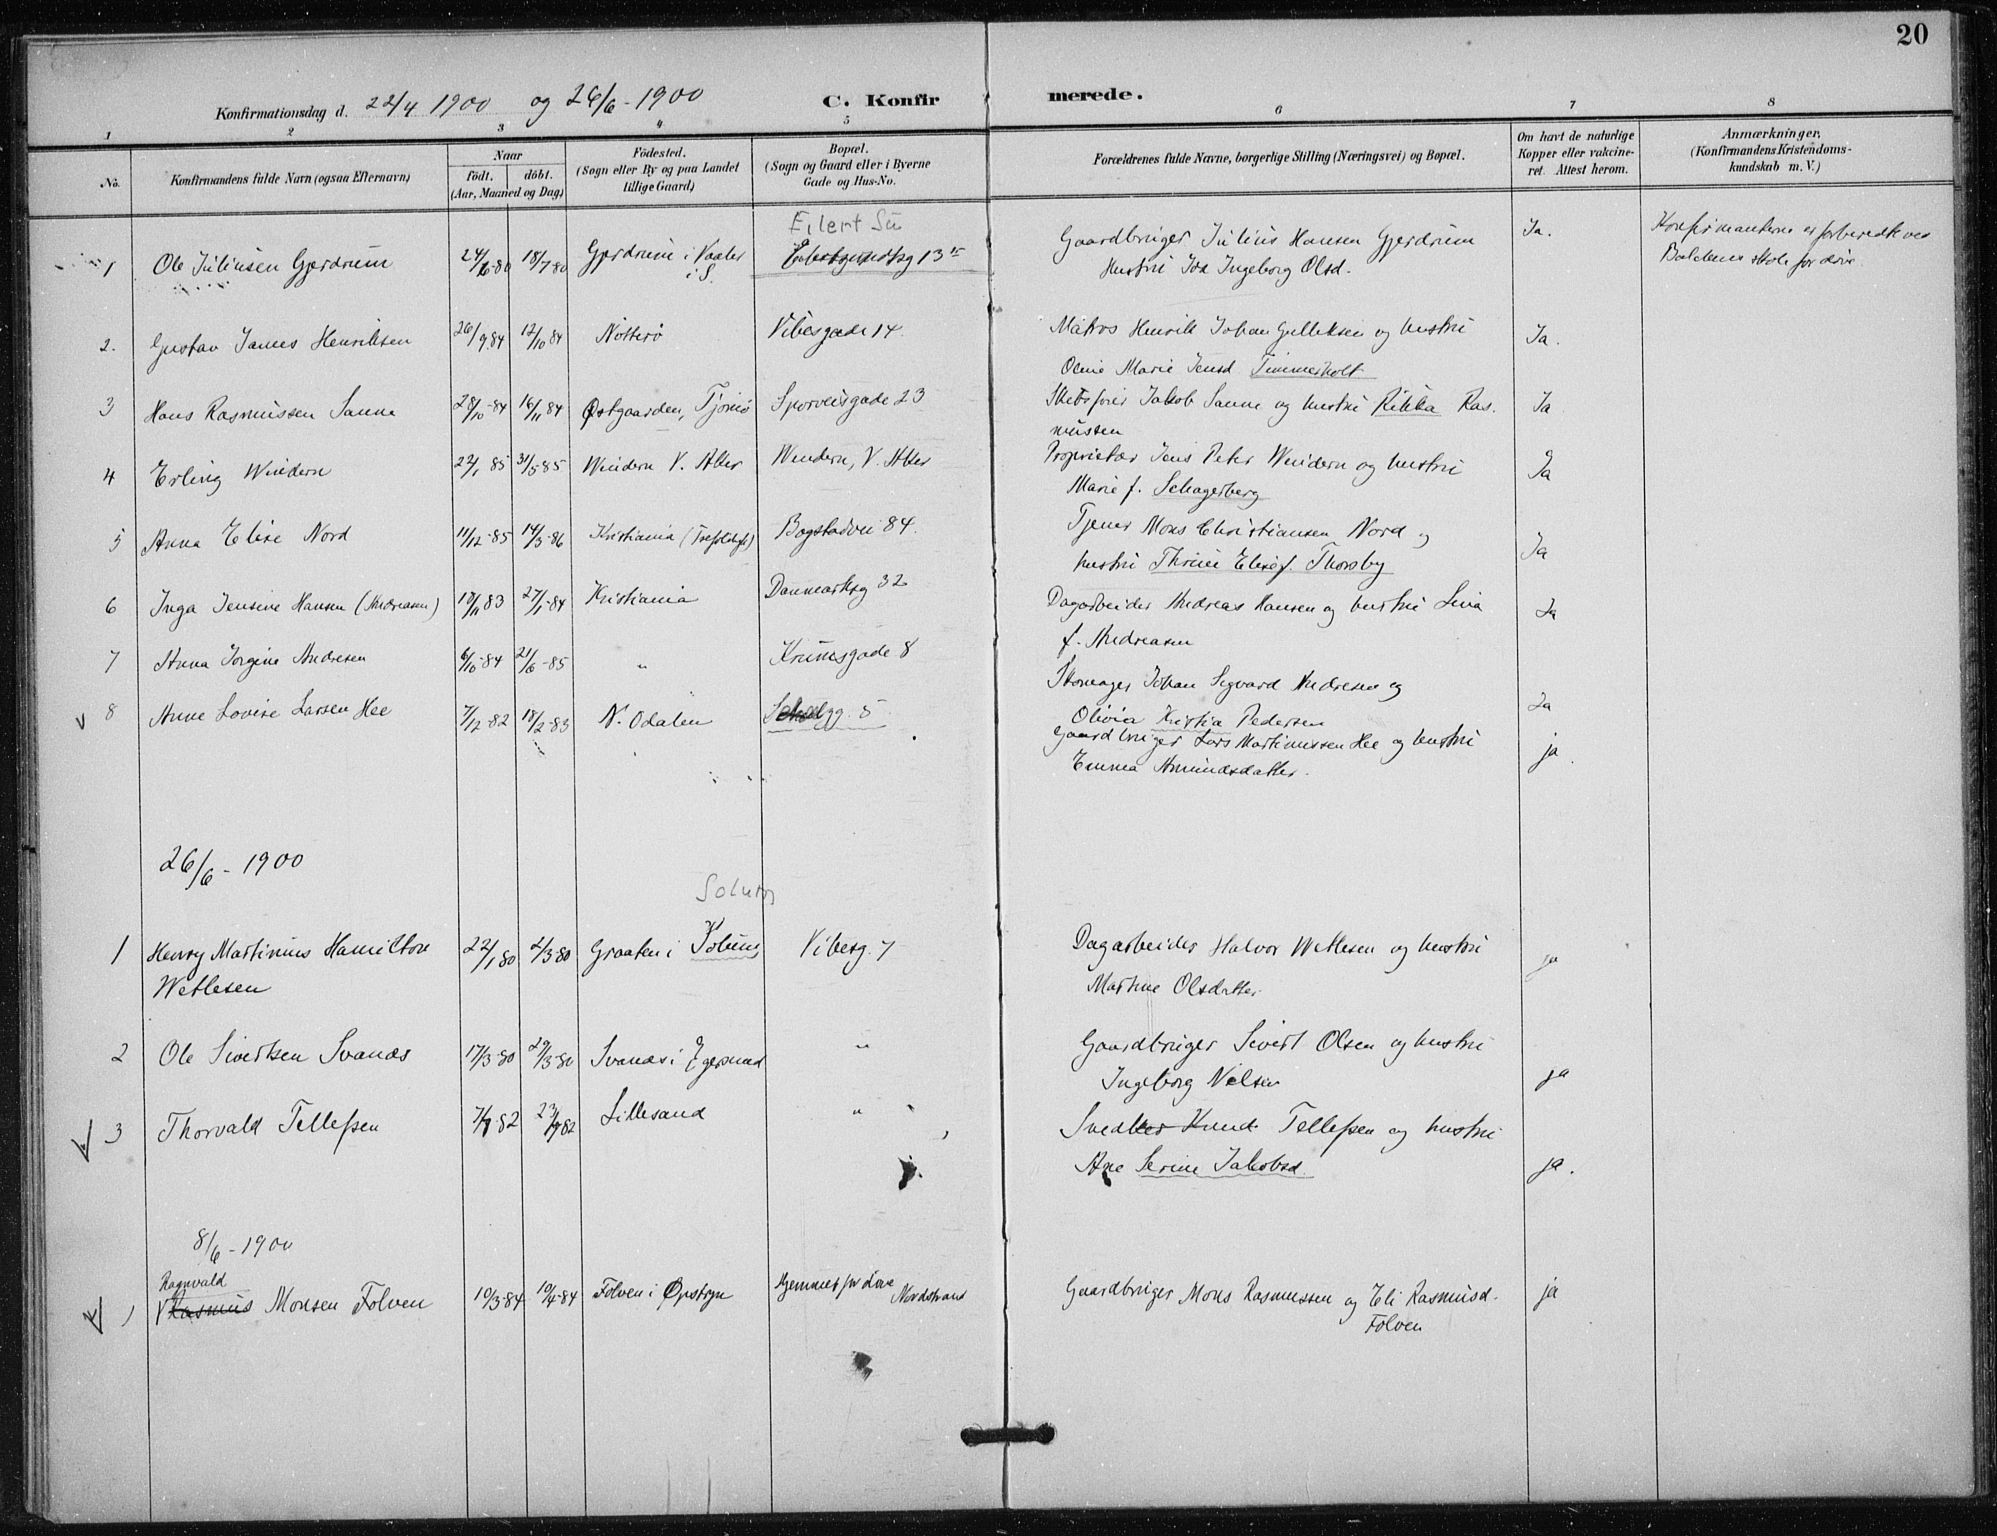 20
Konfirmationsdag d. 22/4 1900 og 26/6-1900 C. Konfirmerede.
1 2 3 4 5 6 7 8
No.
Konfirmandens fulde Navn (ogsaa Efternavn)
Naar
födt. döbt.
(Aar, Maaned og Dag)
Födested.
(Sogn eller By og paa Landet
tillige Gaard)
Bopæl.
(Sogn og Gaard eller i Byerne
Gade og Hus-No.
Forældrenes fulde Navne, borgerlige Stilling (Næringsvei) og Bopæl.
Om havt de naturlige
Kopper eller vakcine-
ret. Attest herom.
Anmærkninger.
(Konfirmandens Kristendoms-
kundskab m. V.)
Eilert Su
1 Ole Juliussen Gjerdrum 24/6-80 18/7 80 Gjerdrum i Vaaler 13 Gaardbruger Julius Hansen Gjerdrum Ja. Konfirmanterne er forberedt ved
i S. Hustru Ida Ingeborg Olsd. Baldens skole for døve
2. Gustav James Henriksen 26/9 84 12/10 84 Nötterö Vibesgade 14 Matros Henrik Johan Gulliksen og hustru Ja.
Oline Marie Jensd Timmerholt
3 Hans Rasmussen Sanne 28/10-84 16/11 84 Østgaarden, Tjömö Sporveisgade 23 Skibsförer Jakob Sanne og hustru Rikka Ras- Ja
mussen
4 Erling Windern 22/1 85 31/5-85 Windern V. Aker Windern, V. Aker Proprietær Jens Peter Windern og hustru Ja
Marie f. Schagerberg
5 Anna Elise Nord 11/12-85 14/3-86 Kristiania (Trefoldigh) Bogstadvei 84. Tjener Mons Christiansen Nord og
hustru Thrine Elise f. Thorsby Ja
6 Inga Jensine Hansen (Andreasen) 18/11 83 27/1-84 Kristiania Danmarksg 32 Dagarbeider Andreas Hansen og hustru Lina Ja
f. Andreasen
7 Anna Jorgine Andresen 6/10-84 21/6-85 " Krumsgade 8 Skomager Johan Sigvard Andresen og
Olivia Kristia Pedersen Ja
8 Anne Lovise Larsen Hee 7/12-82 18/2-83 N. Odalen 5 Gaardbruger Lars Martinussen Hee og hustru ja.
Emma Amundsdatter.
26/6-1900
Solum
1 Henry Martinius Hamilton 22/1 80 2/3 80 Graaten i Viberg. 7 Dagarbeider Halvor Wetlesen og hustru ja
Wetlesen Martine Olsdatter
2 Ole Sivertsen Svanæs 17/3-80 29/3-80 Svanæs i Egersund " Gaardbruger Sivert Olsen og hustru
Ingeborg Nilsen ja
3 Thorvald Tellefsen 82 82 Lillesand " Tellefsen og hustru
Ane Serine Jakobsd. ja.
8/6-1900
Ragnvald
1 Rasmus Monsen Folven 10/3-84 10/4-84 Folven i Opstryn Hjemmet for døve Gaardbruger Mons Rasmussen og Eli Rasmusd. ja
Nordstrand Folven